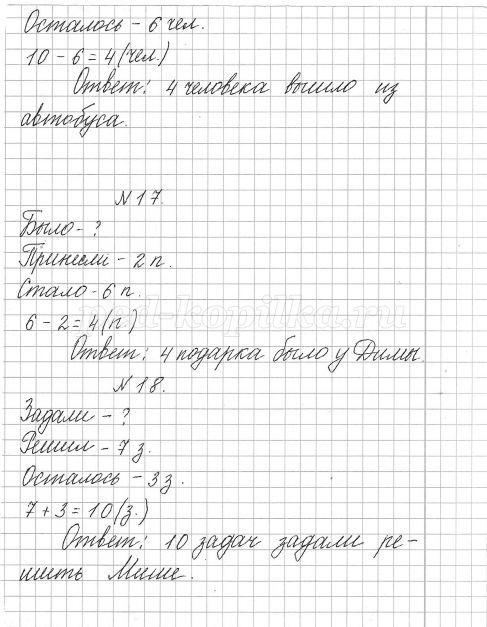 Осталось – 6 чел.
10 – 6 = 4 (чел.)
Ответ: 4 человека вышло из
автобуса.
N 17.
Было - ?
Принесли – 2 п.
Стало - 6 п.
6 – 2 = 4 (п.)
Ответ: 4 подарка было у Димы.
N 18.
Задали – ?
Решил – 7 з.
Осталось – 3 з.
7 + 3 = 10 (з.)
Ответ: 10 задач задали ре-
шить Мише.